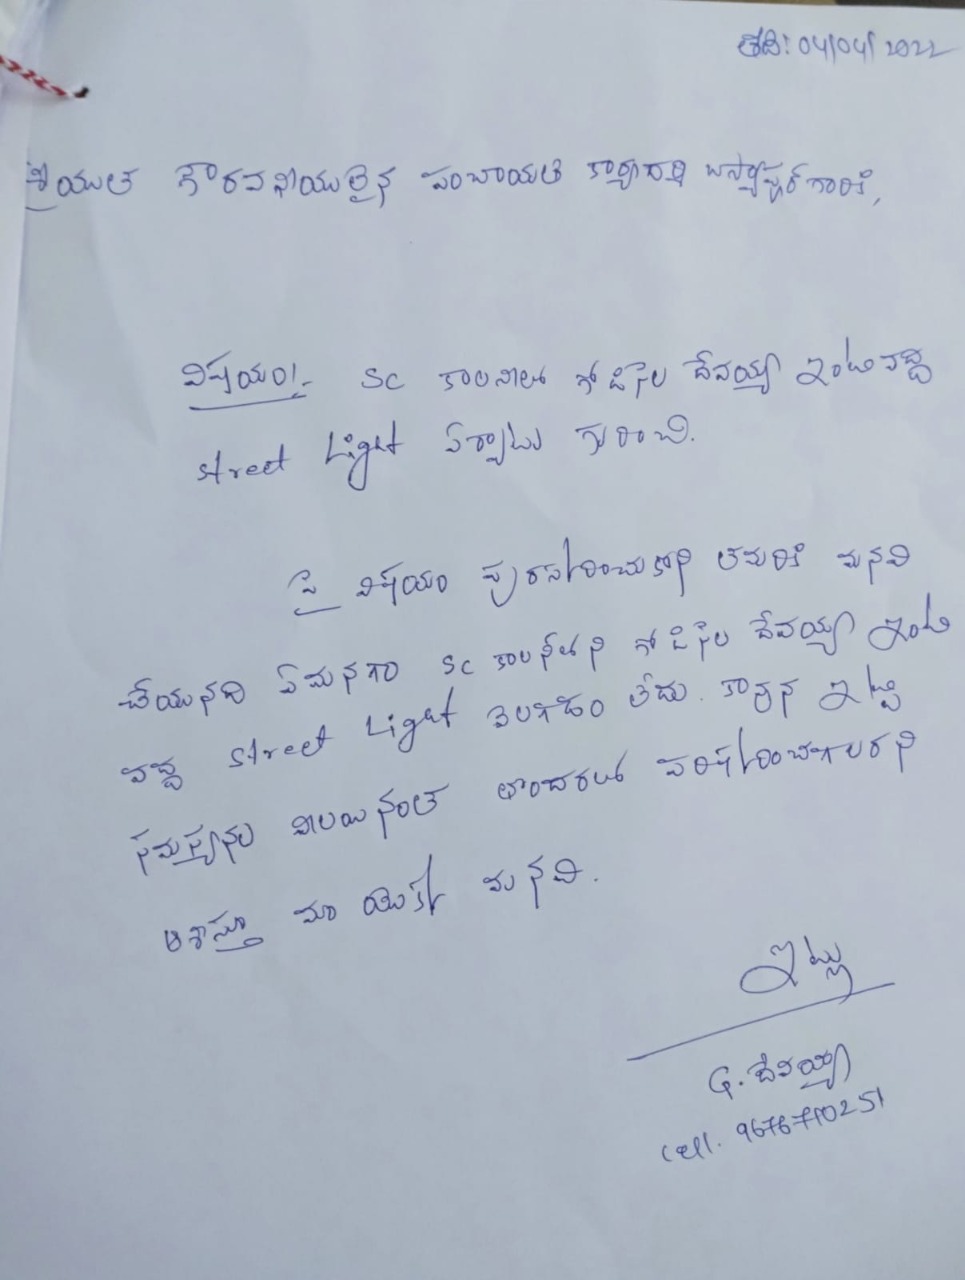 తేది: 04/04/2022
శ్రీయుత గౌరవనీయులైన పంచాయతి కార్యదర్శి గారికి,
విషయం:- SC కాలనీలో గోడిసెల దేవయ్య ఇంటి వద్ద
street Light ఏర్పాటు గురించి.
పై విషయం పురస్కరించుకొని తమరికి మనవి
చేయునది ఏమనగా SC కాలనీలోని గోడిసెల దేవయ్య ఇంటి
వద్ద street Light వెలగడం లేదు. కావున ఇట్టి
సమస్యను వీలయినంత తొందరలో పరిష్కరించగలరని
ఆశిస్తూ మా యొక్క మనవి.
ఇట్లు
G. దేవయ్య
cell. 9676710251